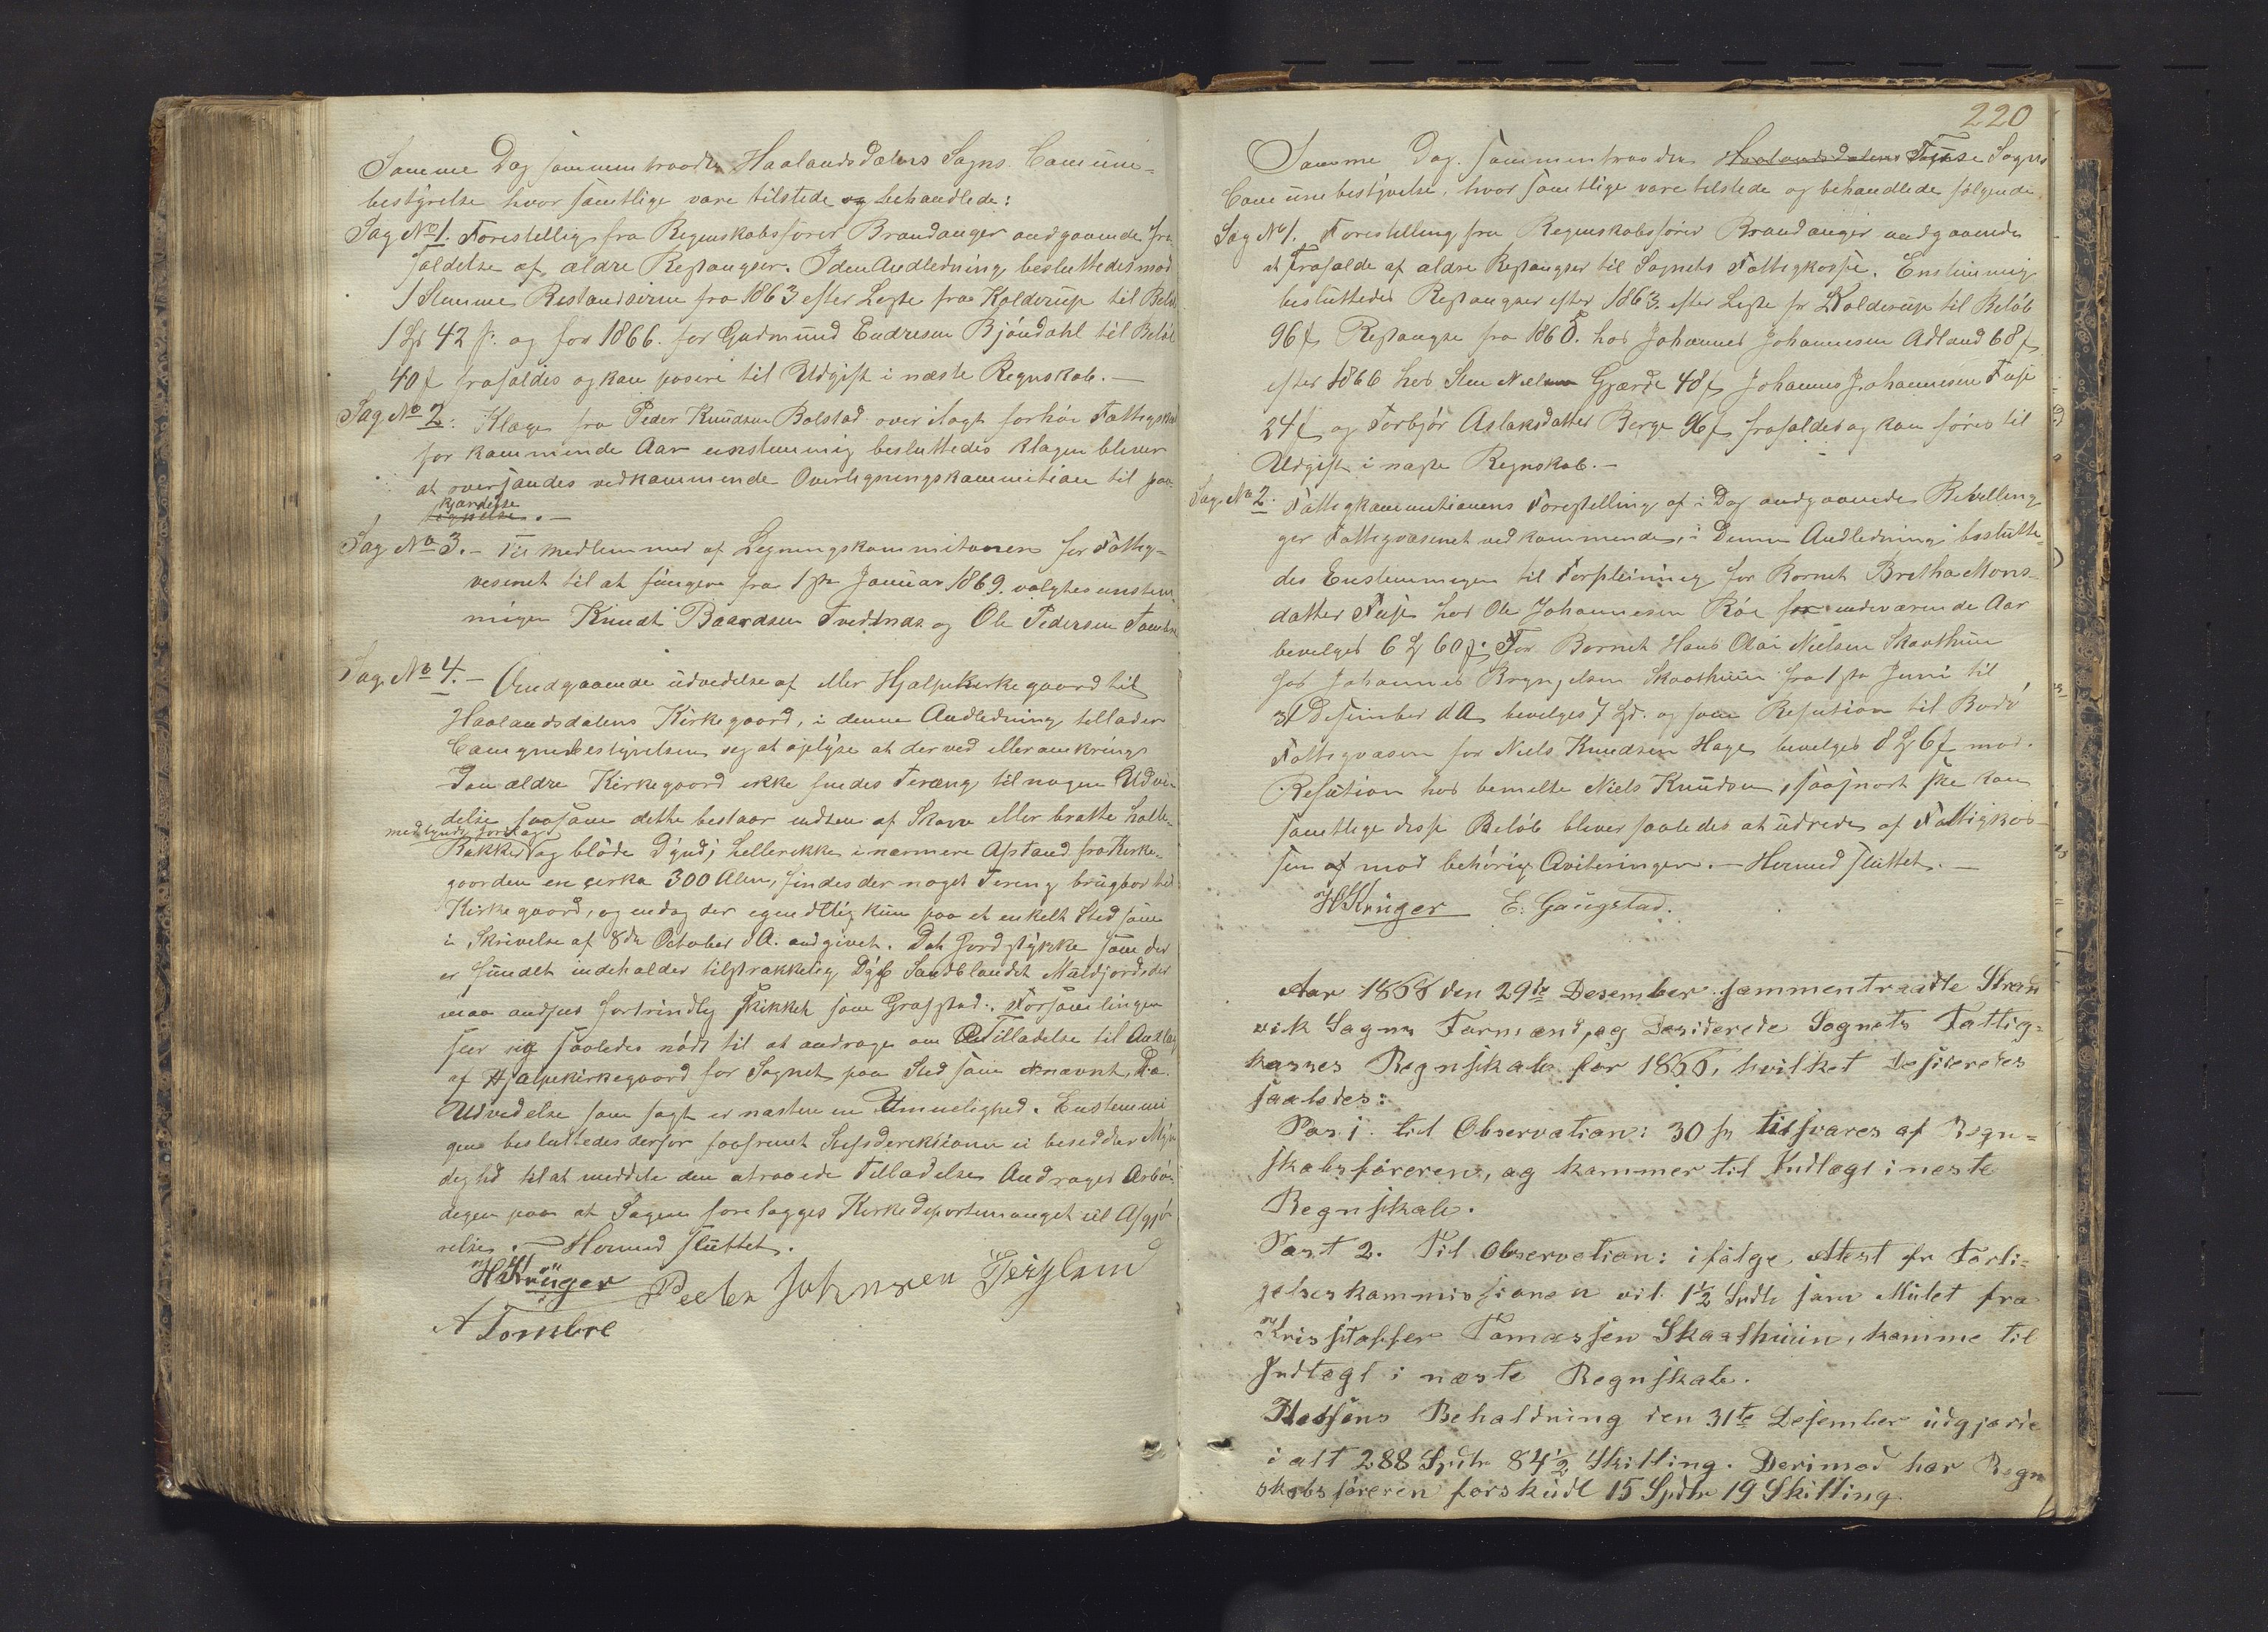 Samme Dag sammentraadte Haalandsdalens Sogns Comune-
bestÿrelse hvor samtlige vare tilstede og behandlede:
Sag No 1. Forestellig fra Regnskabsfører Brandanger andgaaende fra-
faldelse af ældre Restangser. I den Andledning besluttedes mod
1 Stemme Restandserne fra 1863 efter Leste fra Kolderup til Beløb
1 Spd 42 s. og for 1866. for Gudmund Endresen Bjöndahl til Beløb
40 s frafaldes og kan posere til Udgift i næste Regnskab.—
Sag No 2: Klage fra Peder Knudsen Bolstad over ilagt forhöi Fattigskat
for kommende Aar enstemmig besluttedes Klagen bliver
at oversændes vedkommende Overligningskommition til paa
kjændelse
.—
Sag No 3.— Til Medlemmer af Legningskommitonen for Fattig-
vesenet til at fungere fra 1ste Januar 1869. valgtes enstem-
migen Knudt Baardsen Tvedtnæs og Ole Pedersen Tombre
Sag No 4.— Andgaaende udvedelse af eller Hjælpekirkegaard til
Haalandsdalens Kirkegaard, i denne Andledning tellader
Comgnebestyrelsen seg at oplyse at der ved eller omkrings
Den ældre Kirkegaard ikke findes Teræng til nogen Udvi-
delse saasom dette bestaar endten af Skove eller bratte holle
med tynde Jordlag
Bakker og blöde Dynd; hellerikke i nærmere Afstand fra Kirke-
gaarden en cirka 300 Alen, findes der noget Tereng brugbar til
Kirkegaard, og endog der egendtlig kun paa et enkelt Sted som
i Skrivelse af 8de October d A. andgivet. Det Jordstykke som der
er fundet indeholder tilstrækkelig Dyb Sandblandet Muldjord der
maa andsees fortrindlig skikket som Gravstad. Forsamlingen
seer sig saaledes nödt til at andrage om Tilladelse til Anlæg
af Hjælpekirkegaard for Sognet paa Sted som nævnt, Da
Udvedelse som sagt er næsten en Umuelighed. Enstemmi
gen besluttedes derfor saafremt Stefsdereksionen ei beseddær Myn
dighed til at meddele den atraaede Tilladelse Andrages Ærbö-
degen paa at Sagen forelægges Kirkedepartemanget til Afgjø-
relse.— Hermed sluttet.
H Krüger Peder Johnsen Teigland
A Tombre
220
Samme Dag. sammentraadte Haalandsdalens Fuse Sogns
Comunebestÿrelse, hvor samtlige vare tilstede og behandlede følgende
Sag No 1. Forestelling fra Regnskabsfører Brandanger andgaaende
at frafalde af ældre Restangser til Sognets Fattigkasse. Enstemmig
besluttedes Restangser efter 1863. efter Leste fr Kolderup til Beløb
96 s Restangse fra 1865. hos Johannes Johannesen Adland 68 s
efter 1866 hos Sten Nielsen Gjærde 48 s Johannes Johannesen Fuse
24 s og Torbjør Aslaksdatter Berge 96 s frafaldes og kan føres til
Udgift i næste Regnskab.—
Sag No 2. Fattigkommitionens Forestelling af i Dag andgaaende Bevelling
ger Fattigvæsenet vedkommende, i Denne Andledning beslutte-
des Enstemmigen til Forpleining for Barnet Bretha Mons-
datter Fuse hos Ole Johannesen Röe for indeværende Aar
bevelges 6 Spd 60 s; For Barnet Hans Olai Nielsen Skaathun
hos Johannes Brynjelsen Skaathuun fra 1ste Juni til
31 Desember d A bevelges 7 Spd. og som Refution til Bodö
Fattigvæsen for Niels Knudsen Hage bevelges 8 Spd 6 s mod
Refution hos bemelte Niels Knudsen, saasnart ske kan
samtlige desse Beløb bliver saaledes at udrede af Fattigkas-
sen af mod behörig Qviteringer.— Hermed sluttet.—
H Krüger E. Gaugstad.
Aar 1868 den 29de Desember sammentraadte Stran
vik Sogns Formænd, og Desiderede Sognets Fattig-
kasses Regnskab for 1866, hvilket Desideredes
saaledes:
Pos. 1. til Observation: 30 s tilsvares af Regn-
skabsføreren, og kommer til Indtægt i neste
Regnskab.
Post 2. Til Observation: ifølge Atest fr Forli-
gelseskommissionen vil 1½ Spdlr som Mulct fra
Kristoffer Tomassen Skaathuun, komme til
Indtægt i næste Regnskab.
Kassens Behaldning den 31te Desember udgjorde
i alt 288 Spdlr 84½ Skilling. Derimod har Regn
skabsføreren forskudt 15 Spdlr 19 Skilling.